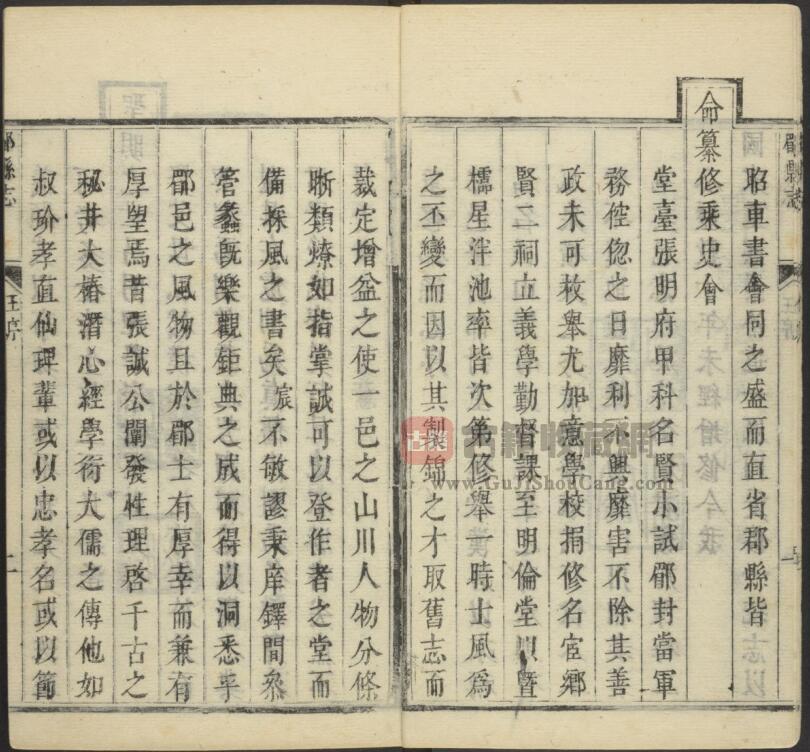 昭車書會同之盛而直省郡縣皆
命纂修乘史會
堂臺張明府甲科名賢小試郿封當軍
務倥偬之日靡利不興靡害不除其善
政未可枚舉尤加意學校捐修名宦鄉
賢二祠立義學勤督課至明倫堂以暨
櫺星泮池率皆次第修舉一時士風為
之丕變而因以其製錦之才取舊志而
裁定增益之使一邑之山川人物分條
晰類燎如指掌誠可以登作者之堂而
備採風之書矣宸不敏謬秉庠鐸間叅
管蠡旣樂觀鉅典之成而得以洞悉乎
郿邑之風物且於郿士有厚幸而兼有
厚望焉昔張誠公闡發性理啓千古之
秘井大椿潛心經學衍大儒之傳他如
叔玠孝直仙理輩或以忠孝名或以節
郿縣志
王序
二
郿縣志
王序
古籍收藏网
www.GuJiShouCang.com